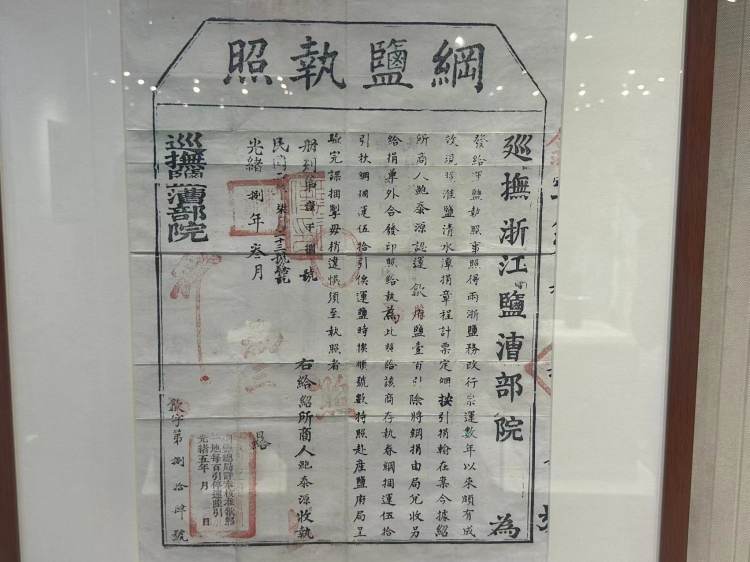 綱鹽執照
巡撫浙江鹽漕部院 為
發給綱鹽執照事照得兩浙鹽務改行票運數年以來頗有成
效現援淮鹽清水潭捐章程計票定綱按引捐輸在案今據紹
所商人鮑泰源認運歙 鹽壹百引除將綱捐由局兌收另
給捐票外合發印照給執為此照給該商存執春綱捆運伍拾
引秋綱捆運伍拾引俟運鹽時挨順號數持照赴產鹽 局呈
驗完課捆掣毋稍違悞須至執照者
右給紹所商人鮑泰源收執
冊列第 號
民國
光緒捌年叁月
巡撫 漕部院
光緒五年 月 日
歙字第捌拾肆號